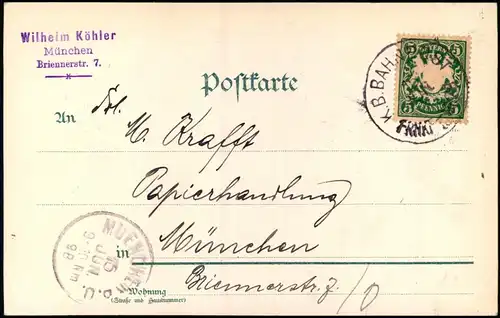 Wilhelm Köhler
München
Briennerstr. 7.
Postkarte
BAYERN
5 5
PFENNIG
K.B.BAHN
An Frl.
M. Krafft
Papierhandlung
in München
Briennerstr. 7/0
Wohnung
(Straße und Hausnummer)
MUENCHEN
15
JUN
98